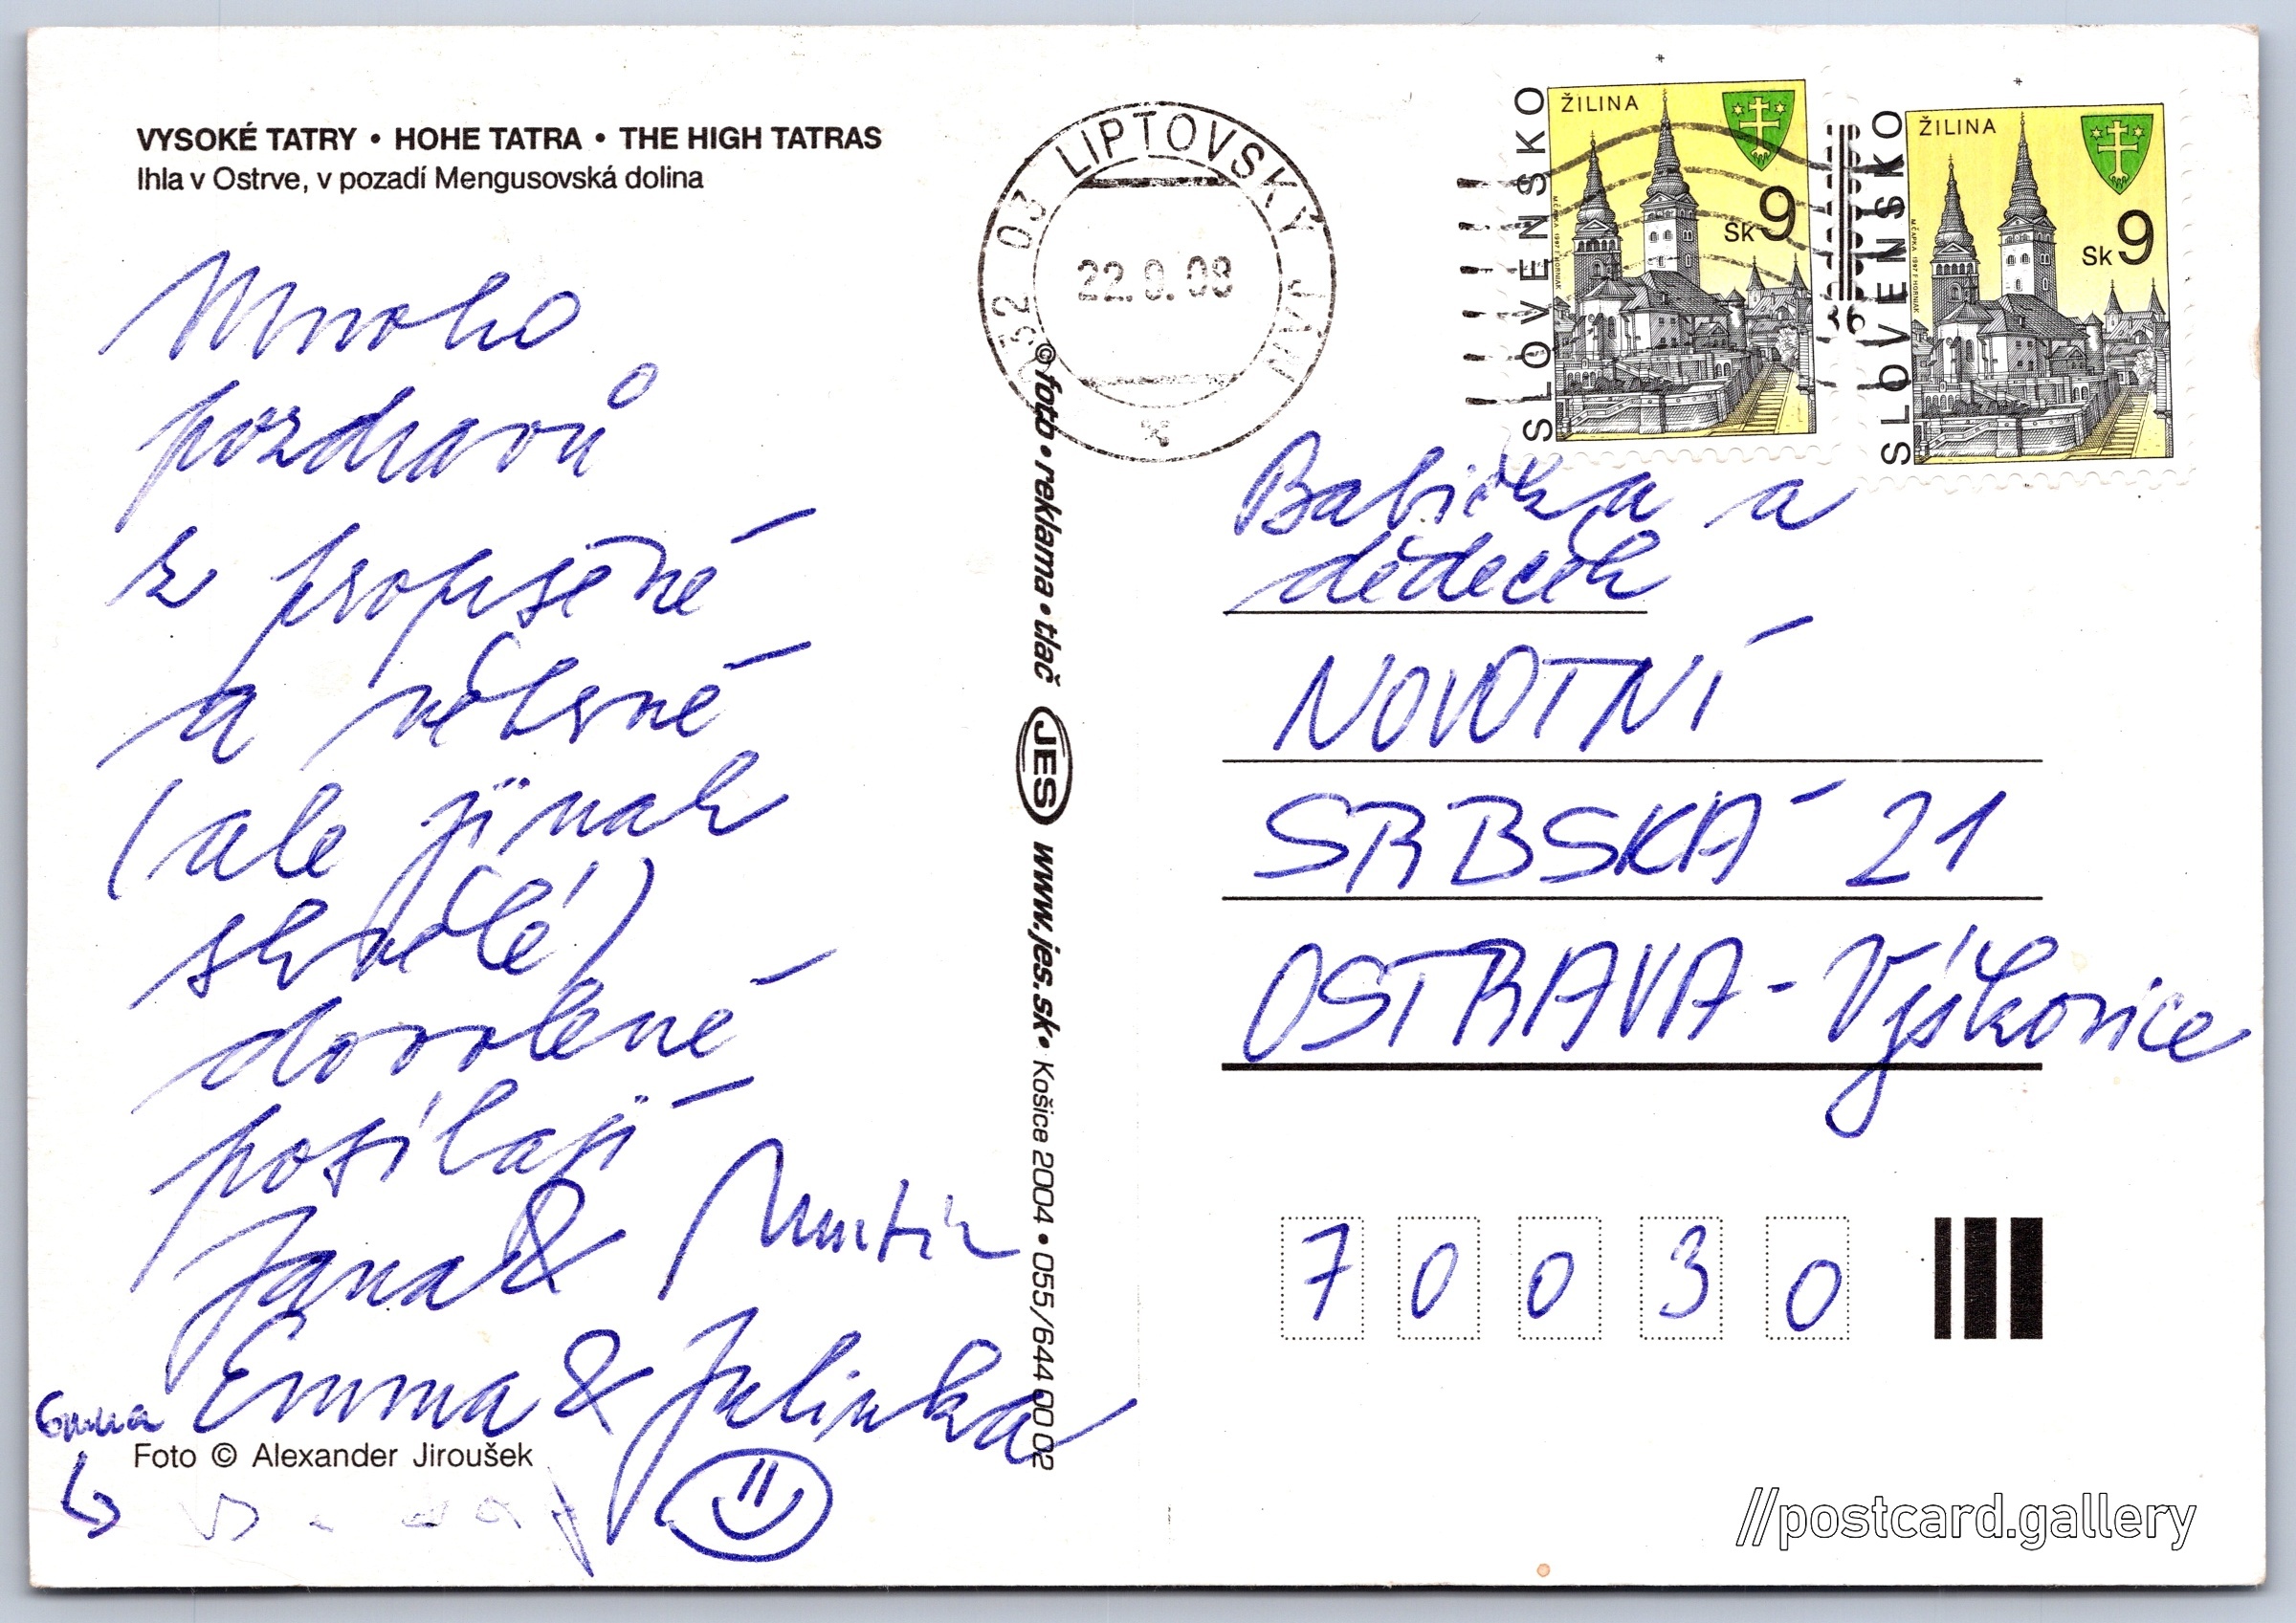 VYSOKÉ TATRY • HOHE TATRA • THE HIGH TATRAS
Ihla v Ostrve, v pozadí Mengusovská dolina
Mnoho
pozdravů
z propršené
a větrné
(ale jinak
skvělé)
dovolené
posílají
Jana & Martin
Emma & Julinka
Emma
Foto © Alexander Jiroušek
© foto • reklama • tlač JES www.jes.sk • Košice 2004 • 055/644 00 02
032 03 LIPTOVSKÝ JÁN
SLOVENSKO
ŽILINA
Sk 9
SLOVENSKO
ŽILINA
Sk 9
Babička a
dědeček
NOVOTNÍ
SRBSKÁ 21
OSTRAVA - Výškovice
70030
//postcard.gallery